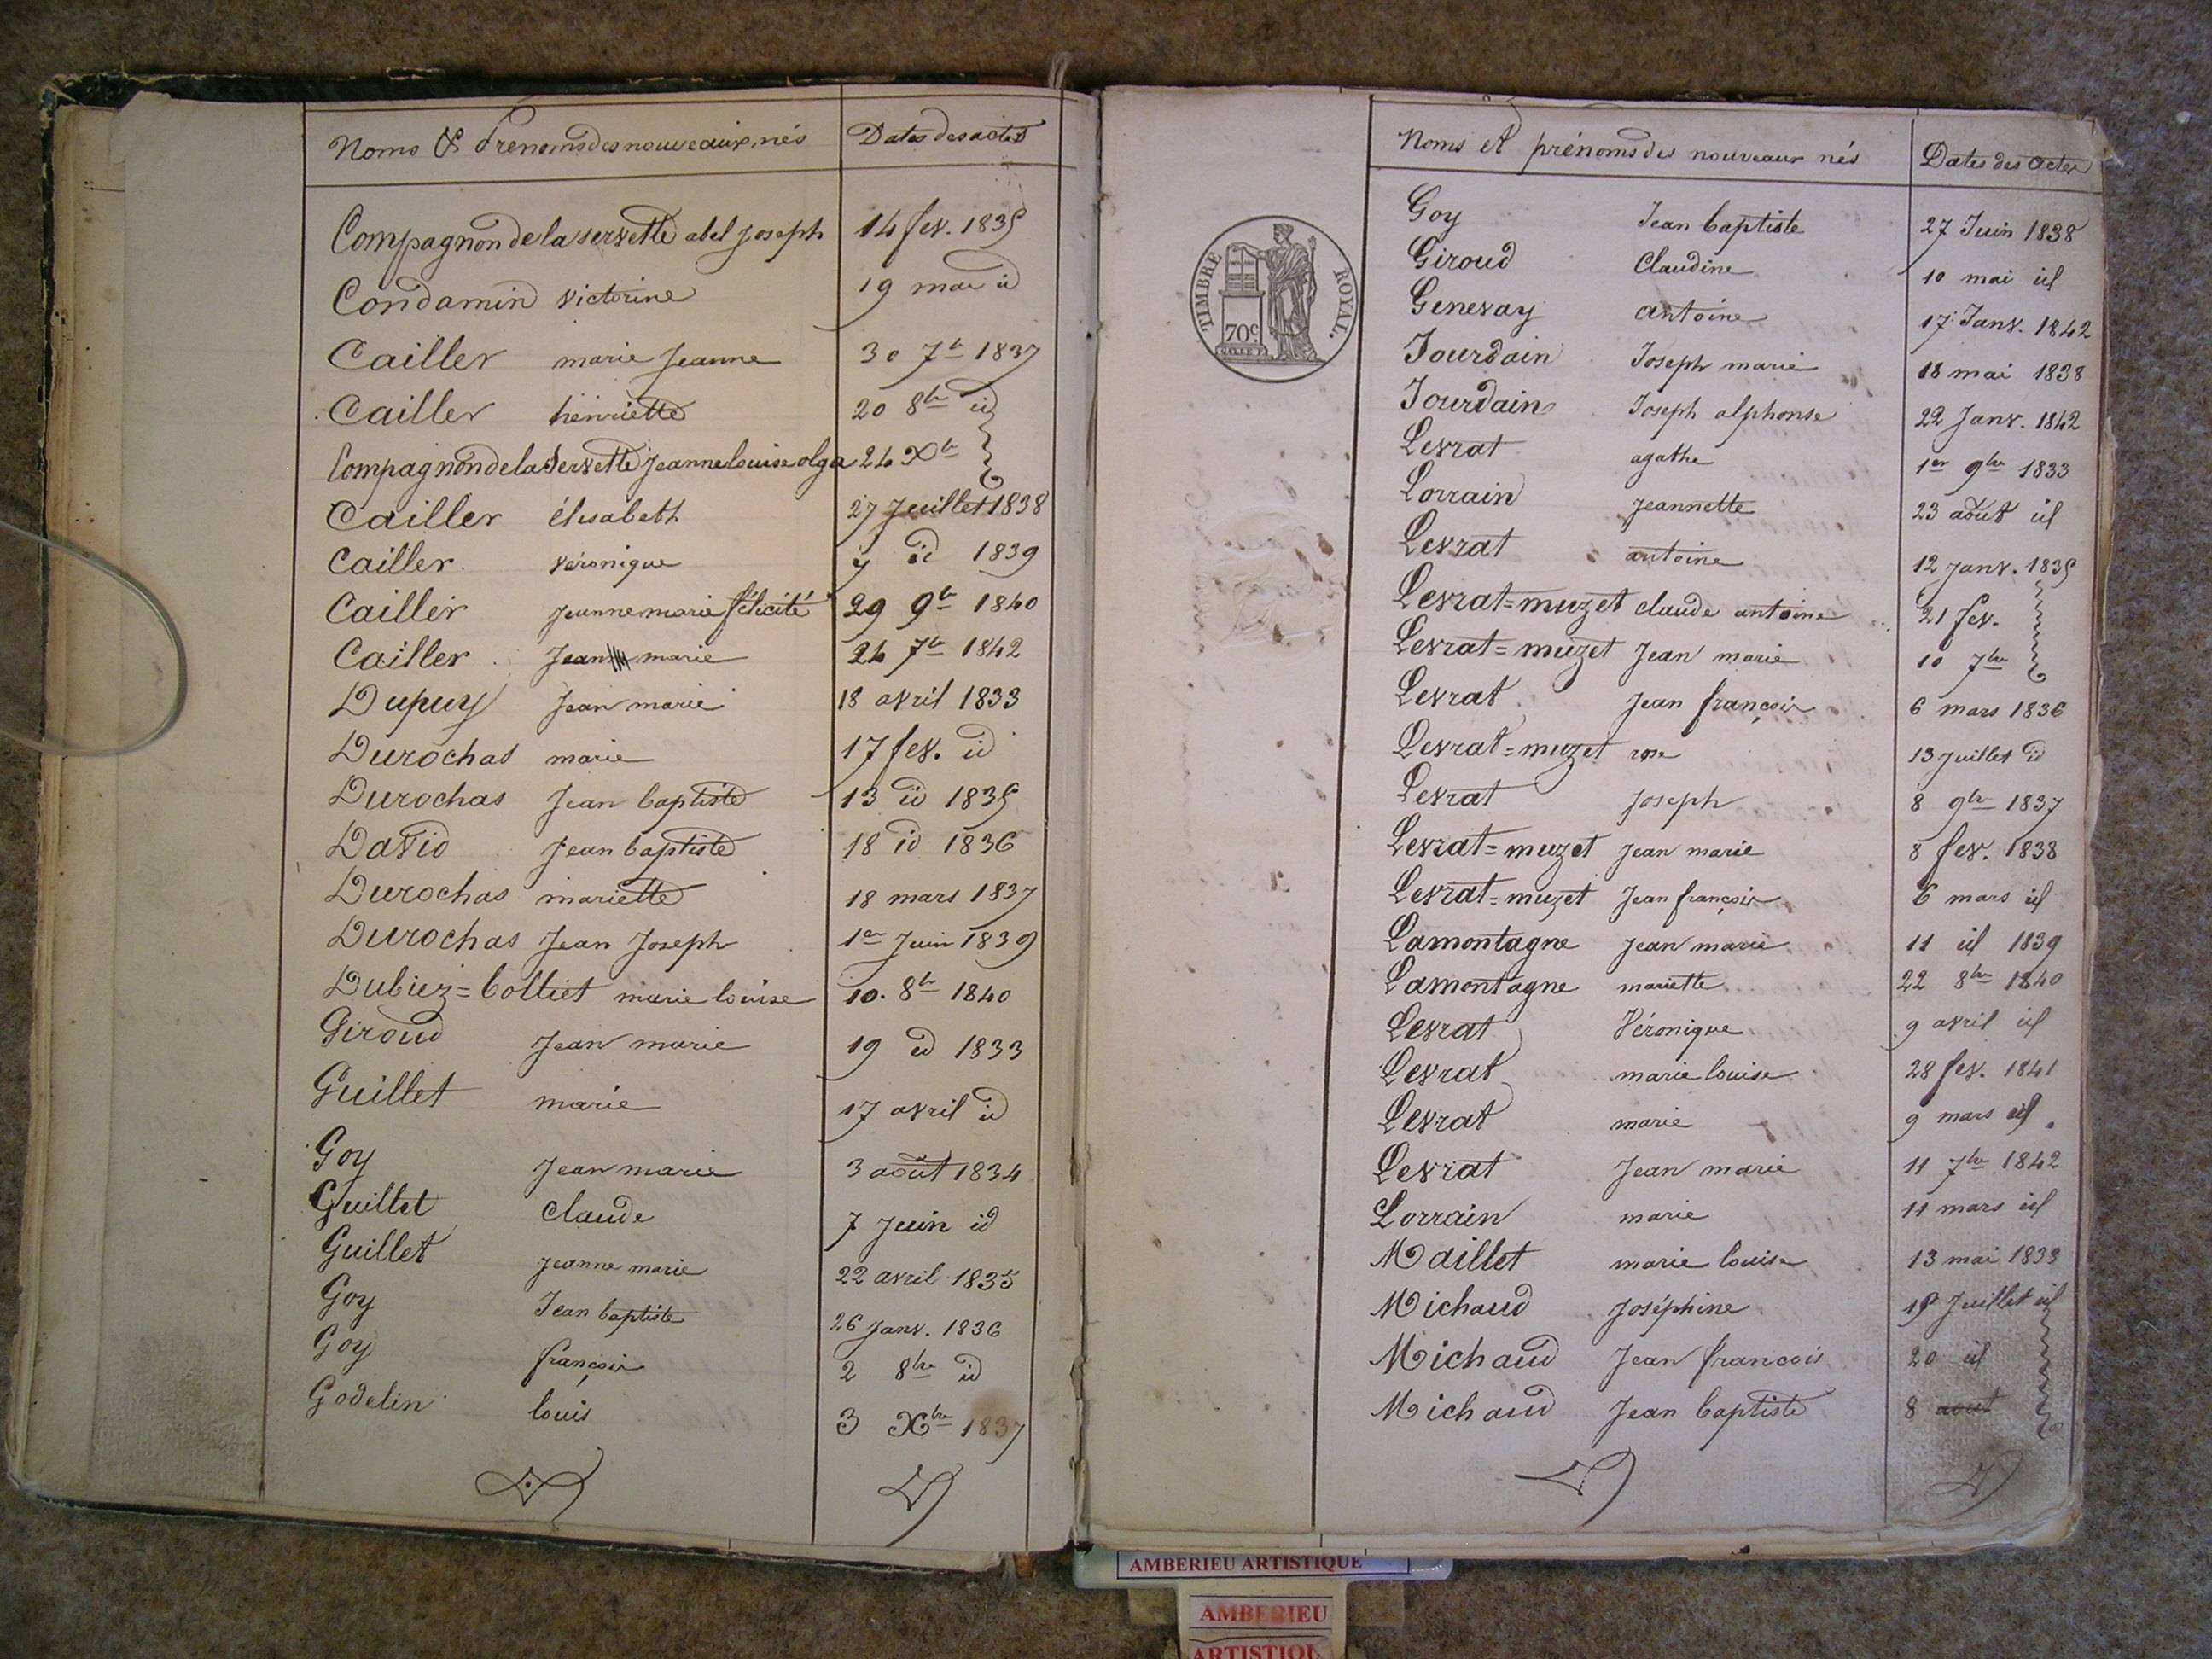 Noms & Prenoms des nouveaux nés Dates des actes
Compagnon de la servette abel Joseph 14 fev. 1835
Condamin victorine 19 mai id
Cailler marie Jeanne 30 7b 1837
Cailler henriette 20 8bre id
Compagnon de la Servette Jeanne louise olga 24 Xbre
Cailler élisabeth 27 Juillet 1838
Cailler véronique id 1839
Cailler Jeanne marie félicité 29 9b 1840
Cailler Jean marie 24 7b 1842
Dupuy Jean marie 18 avril 1833
Durochas marie 17 fev. id
Durochas Jean baptiste 13 id 1835
David Jean baptiste 18 id 1836
Durochas mariette 18 mars 1837
Durochas Jean Joseph 1er Juin 1839
Dubiez=bolliet marie louise 10. 8b 1840
Giroud Jean marie 19 id 1833
Guillet marie 17 avril id
Goy Jean marie 3 août 1834
Guillet Claude 7 Juin id
Guillet Jeanne marie 22 avril 1835
Goy Jean baptiste 26 Janv. 1836
Goy françois 2 8bre id
Godelin louis 3 Xbre 1837
TIMBRE ROYAL.
70c.
Noms et prénoms des nouveaux nés Dates des Actes
Goy Jean baptiste 27 Juin 1838
Giroud Claudine 10 mai id
Genevay antoine 17 Janv. 1842
Jourdain Joseph marie 18 mai 1838
Jourdain Joseph alphonse 22 Janv. 1842
Levrat agathe 1er 9bre 1833
Lorrain Jeannette 23 août id
Levrat antoine 12 Janv. 1835
Levrat=muzet claude antoine 21 fev.
Levrat=muzet Jean marie 10 7bre
Levrat Jean françois 6 mars 1836
Levrat=muzet rose 13 Juillet id
Levrat Joseph 8 9bre 1837
Levrat=muzet Jean marie 8 fev. 1838
Levrat=muzet Jean françois 6 mars id
Lamontagne Jean marie 11 id 1839
Lamontagne mariette 22 8bre 1840
Levrat Véronique 9 avril id
Levrat marie louise 28 fev. 1841
Levrat marie 9 mars id.
Levrat Jean marie 11 7bre 1842
Lorrain marie 11 mars id
Maillet marie louise 13 mai 1833
Michaud Joséphine Juillet id
Michaud Jean francois 20 id
Michaud Jean baptiste 8 aout
AMBERIEU ARTISTIQUE
AMBERIEU
ARTISTIQU